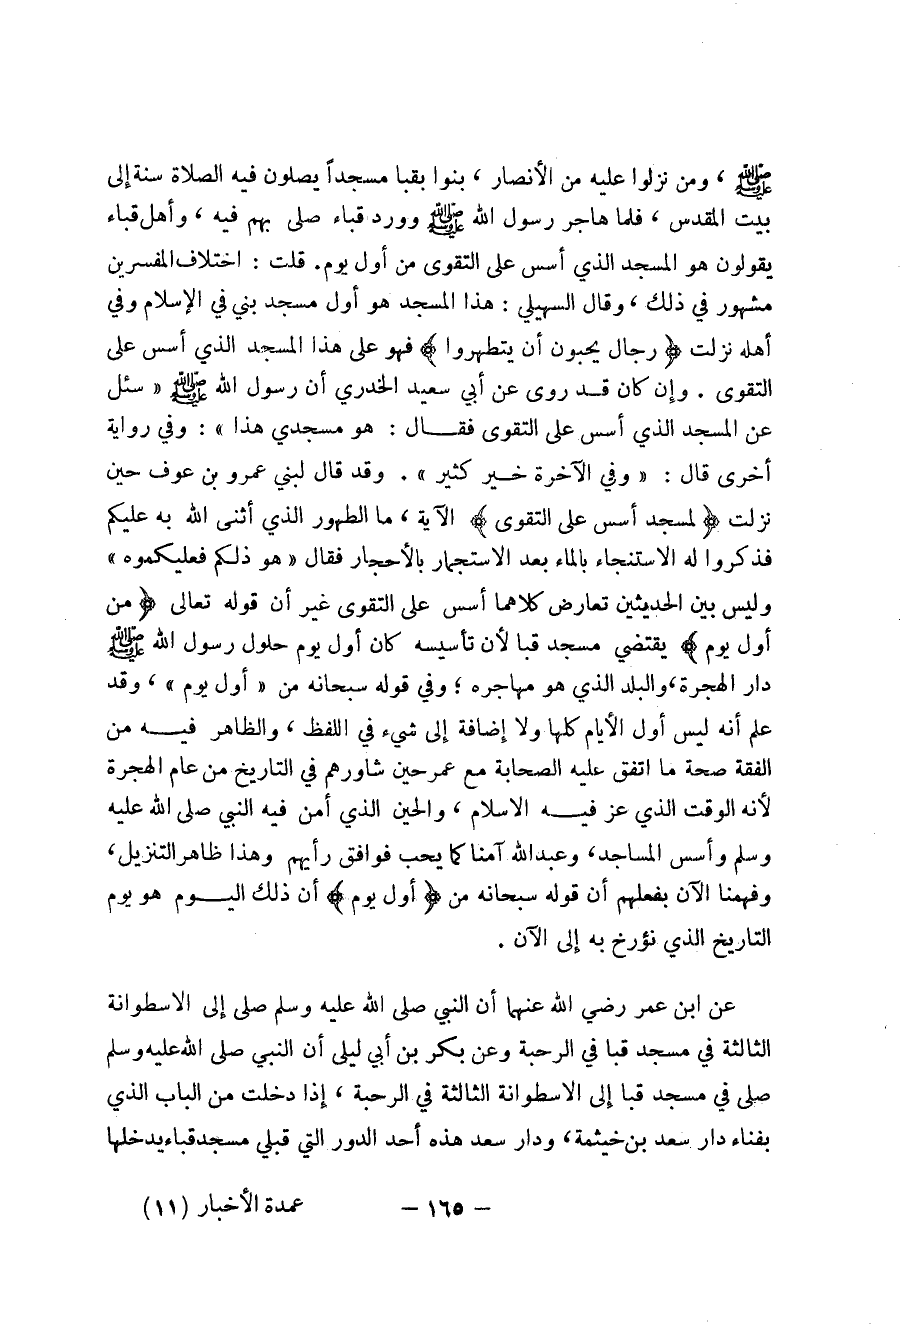 ﷺ ، ومن نزلوا عليه من الأنصار ، بنوا بقبا مسجداً يصلون فيه الصلاة سنة إلى
بيت المقدس ، فلما هاجر رسول الله ﷺ وورد قباء صلى بهم فيه ، وأهل قباء
يقولون هو المسجد الذي أسس على التقوى من أول يوم. قلت : اختلاف المفسرين
مشهور في ذلك ، وقال السهيلي : هذا المسجد هو أول مسجد بني في الإسلام وفي
أهله نزلت ﴿ رجال يحبون أن يتطهروا ﴾ فهو على هذا المسجد الذي أسس على
التقوى . وإن كان قد روى عن أبي سعيد الخدري أن رسول الله ﷺ « سئل
عن المسجد الذي أسس على التقوى فقال : هو مسجدي هذا » : وفي رواية
أخرى قال : « وفي الآخرة خير كثير » . وقد قال لبني عمرو بن عوف حين
نزلت ﴿ لمسجد أسس على التقوى ﴾ الآية ، ما الطهور الذي أثنى الله به عليكم
فذكروا له الاستنجاء بالماء بعد الاستجمار بالأحجار فقال « هو ذلكم فعليكموه »
وليس بين الحديثين تعارض كلاهما أسس على التقوى غير أن قوله تعالى ﴿ من
أول يوم ﴾ يقتضي مسجد قبا لأن تأسيسه كان أول يوم حلول رسول الله ﷺ
دار الهجرة ،والبلد الذي هو مهاجره ؛ وفي قوله سبحانه من « أول يوم » ، وقد
علم أنه ليس أول الأيام كلها ولا إضافة إلى شيء في اللفظ ، والظاهر فيه من
الفقة صحة ما اتفق عليه الصحابة مع عمر حين شاورهم في التاريخ من عام الهجرة
لأنه الوقت الذي عز فيه الاسلام ، والحين الذي أمن فيه النبي صلى الله عليه
وسلم وأسس المساجد، وعبدالله آمنا كما يحب فوافق رأيهم وهذا ظاهر التنزيل،
وفهمنا الآن بفعلهم أن قوله سبحانه من ﴿ أول يوم ﴾ أن ذلك اليوم هو يوم
التاريخ الذي نؤرخ به إلى الآن .
عن ابن عمر رضي الله عنهما أن النبي صلى الله عليه وسلم صلى إلى الاسطوانة
الثالثة في مسجد قبا في الرحبة وعن بكر بن أبي ليلى أن النبي صلى الله عليه وسلم
صلى في مسجد قبا إلى الاسطوانة الثالثة في الرحبة ، إذا دخلت من الباب الذي
بفناء دار سعد بن خيثمة، ودار سعد هذه أحد الدور التي قبلي مسجد قباء يدخلها
- ١٦٥ - عمدة الأخبار (١١)